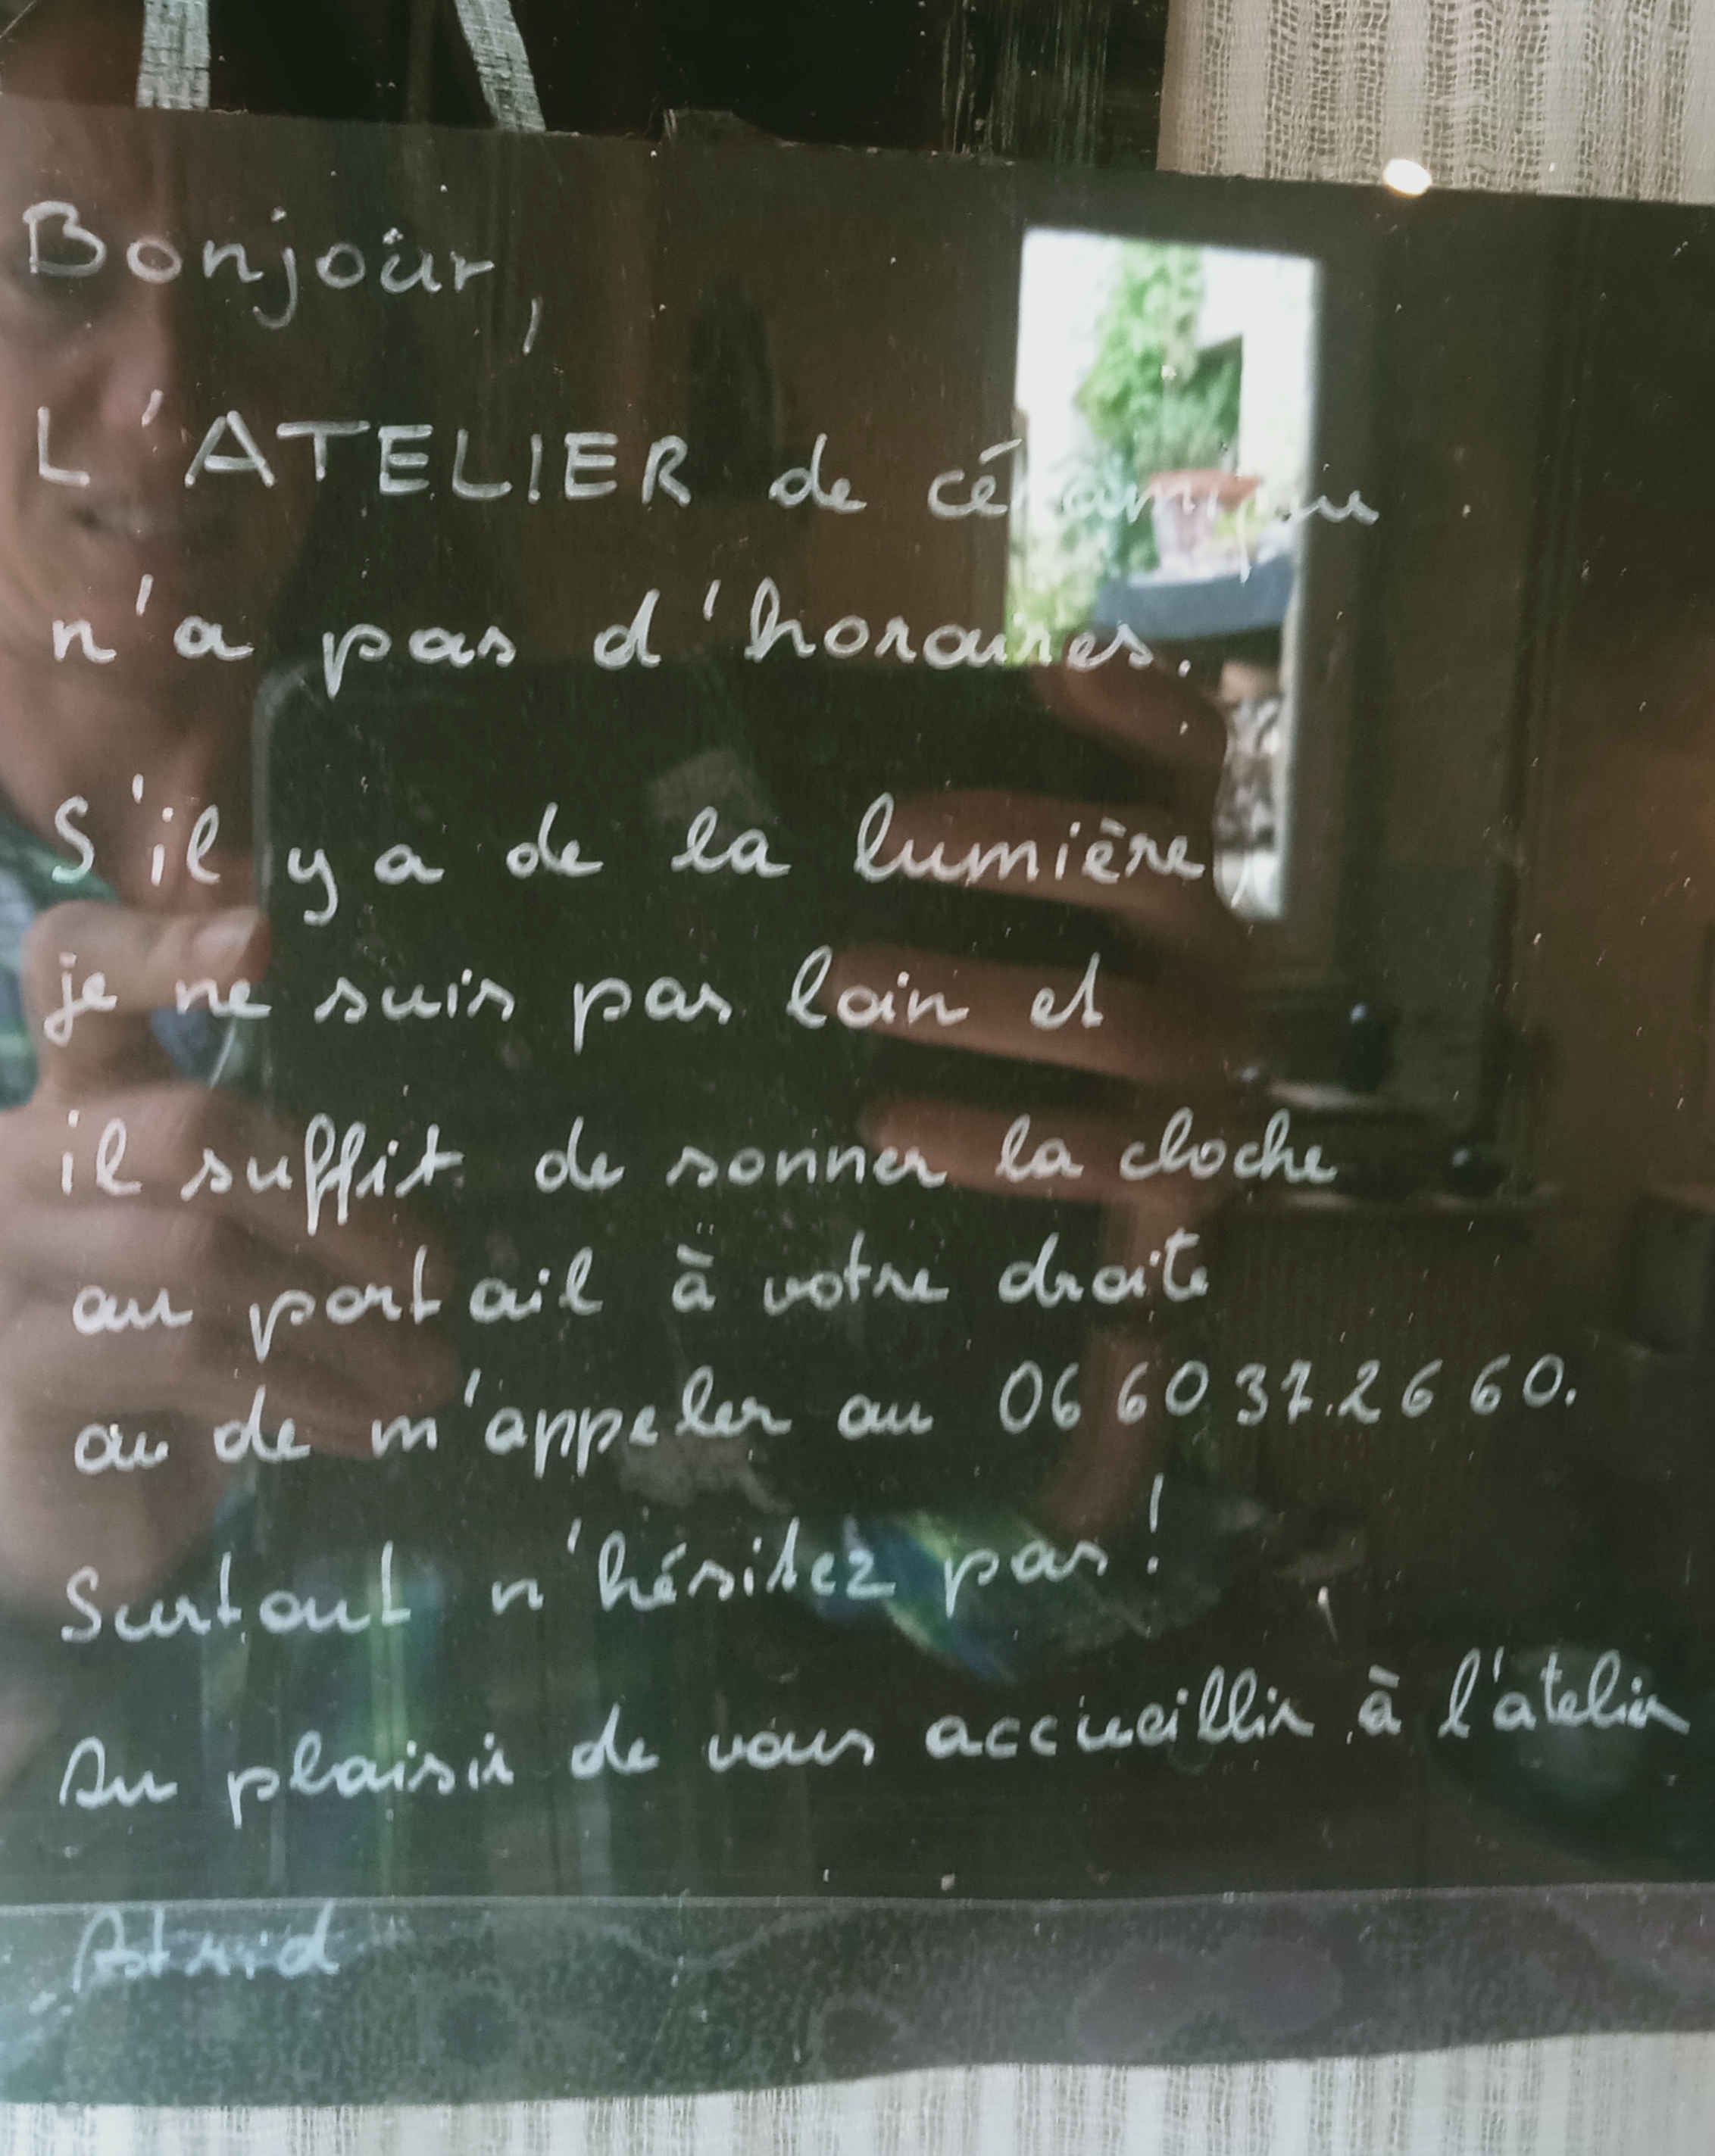 Bonjour,
L'ATELIER de céramique
n'a pas d'horaires.
S'il y a de la lumière,
je ne suis pas loin et
il suffit de sonner la cloche
au portail à votre droite
ou de m'appeler au 06 60 37.26 60.
Surtout n'hésitez pas !
Au plaisir de vous accueillir à l'atelier
Astrid